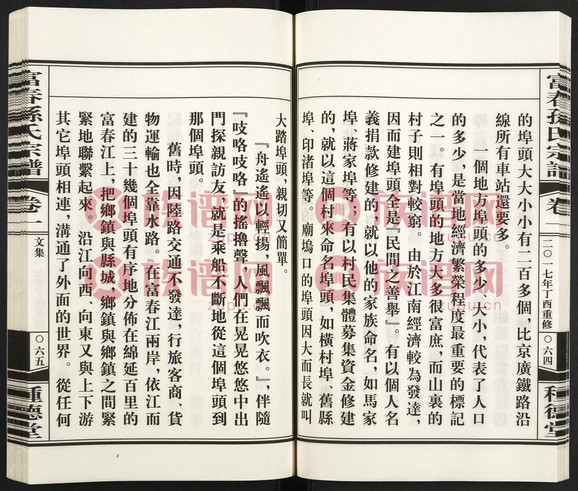 富春孫氏宗譜
卷一
二〇一七年丁酉重修
〇六四
種德堂
的埠頭大大小小有二百多個，比京廣鐵路沿
線所有車站還要多。
一個地方埠頭的多少、大小，代表了人口
的多少，是當地經濟繁榮程度最重要的標記
之一。有埠頭的地方大多很富庶，而山裏的
村子則相對較窮。由於江南經濟較為發達，
因而建埠頭全是『民間之善舉』。有以個人名
義捐款修建的，就以他的家族命名，如馬家
埠、蔣家埠等；有以村民集體募集資金修建
的，就以這個村來命名埠頭，如橫村埠、舊縣
埠、印渚埠等。廟塢口的埠頭因大而長就叫
大踏埠頭，親切又簡單。
『舟遙遙以輕揚，風飄飄而吹衣。』，伴隨
『吱咯吱咯』的搖擼聲，人們在晃晃悠悠中出
門探親訪友，就是乘船不斷地從這個埠頭到
那個埠頭。
舊時，因陸路交通不發達，行旅客商、貨
物運輸也全靠水路。在富春江兩岸，依江而
建的三十幾個埠頭有序地分佈在綿延百里的
富春江上，把鄉鎮與縣城、鄉鎮與鄉鎮之間緊
緊地聯繫起來。沿江向西、向東又與上下游
其它埠頭相連，溝通了外面的世界。從任何
富春孫氏宗譜
卷一
文集
〇六五
種德堂
族谱网
族谱网
族谱网
族谱网